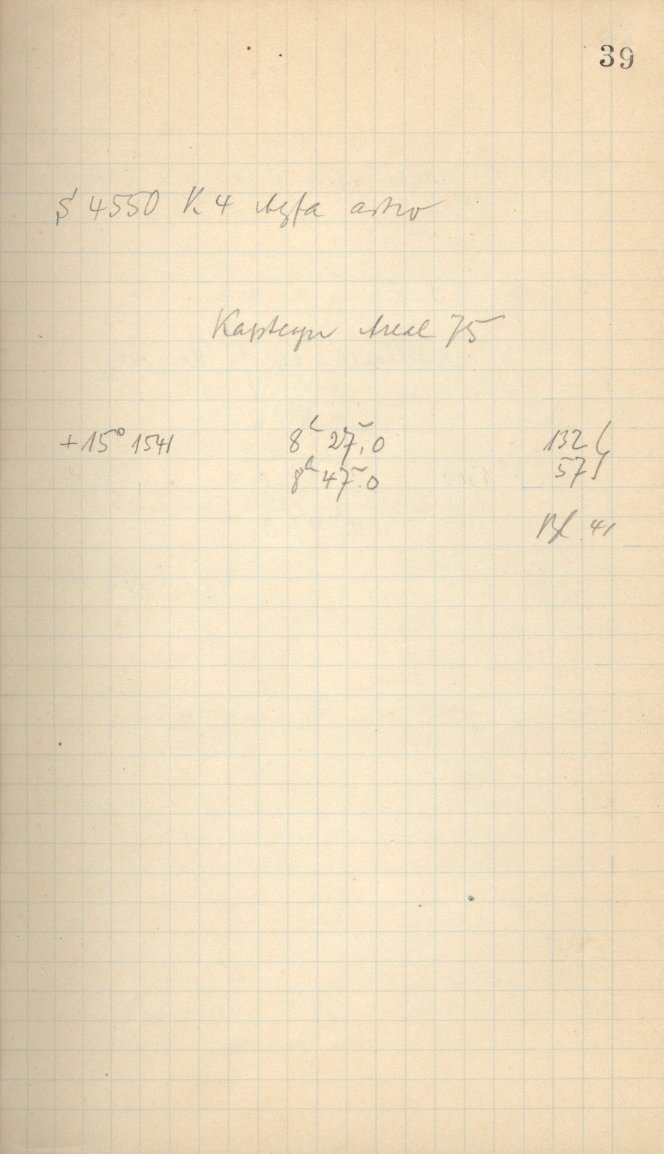 39
S 4550 K 4 Agfa astro
Kapteyn Areal 75
+15° 1541 8h 27m,0 132
8h 47m.0 57
Bl. 41